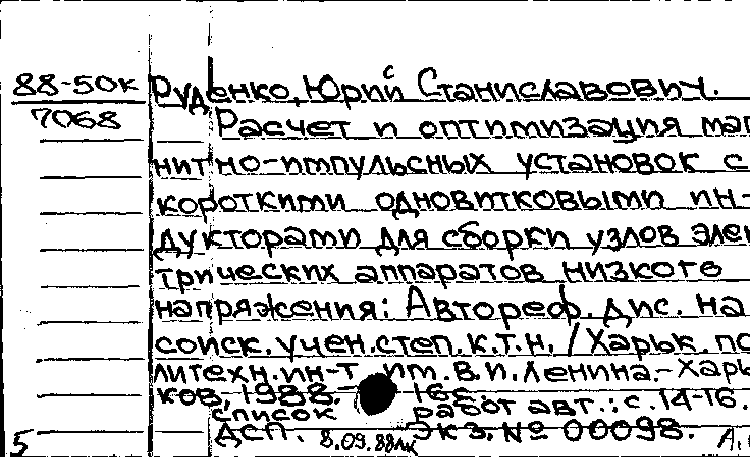 88-50к
7068
Руденко, Юрий Станиславович.
Расчет и оптимизация маг
нитно-импульсных установок с
короткими одновитковыми ин-
дукторами для сборки узлов элек
трических аппаратов низкого
напряжения: Автореф. дис. на
соиск. учен. степ. к.т.н. / Харьк. по
литехн. ин-т им. В.И. Ленина.- Харь
ков, 1988.- 16с.
Список работ авт.: с.14-16.
ДСП. Экз. № 00098.
5 8.09.88 А.